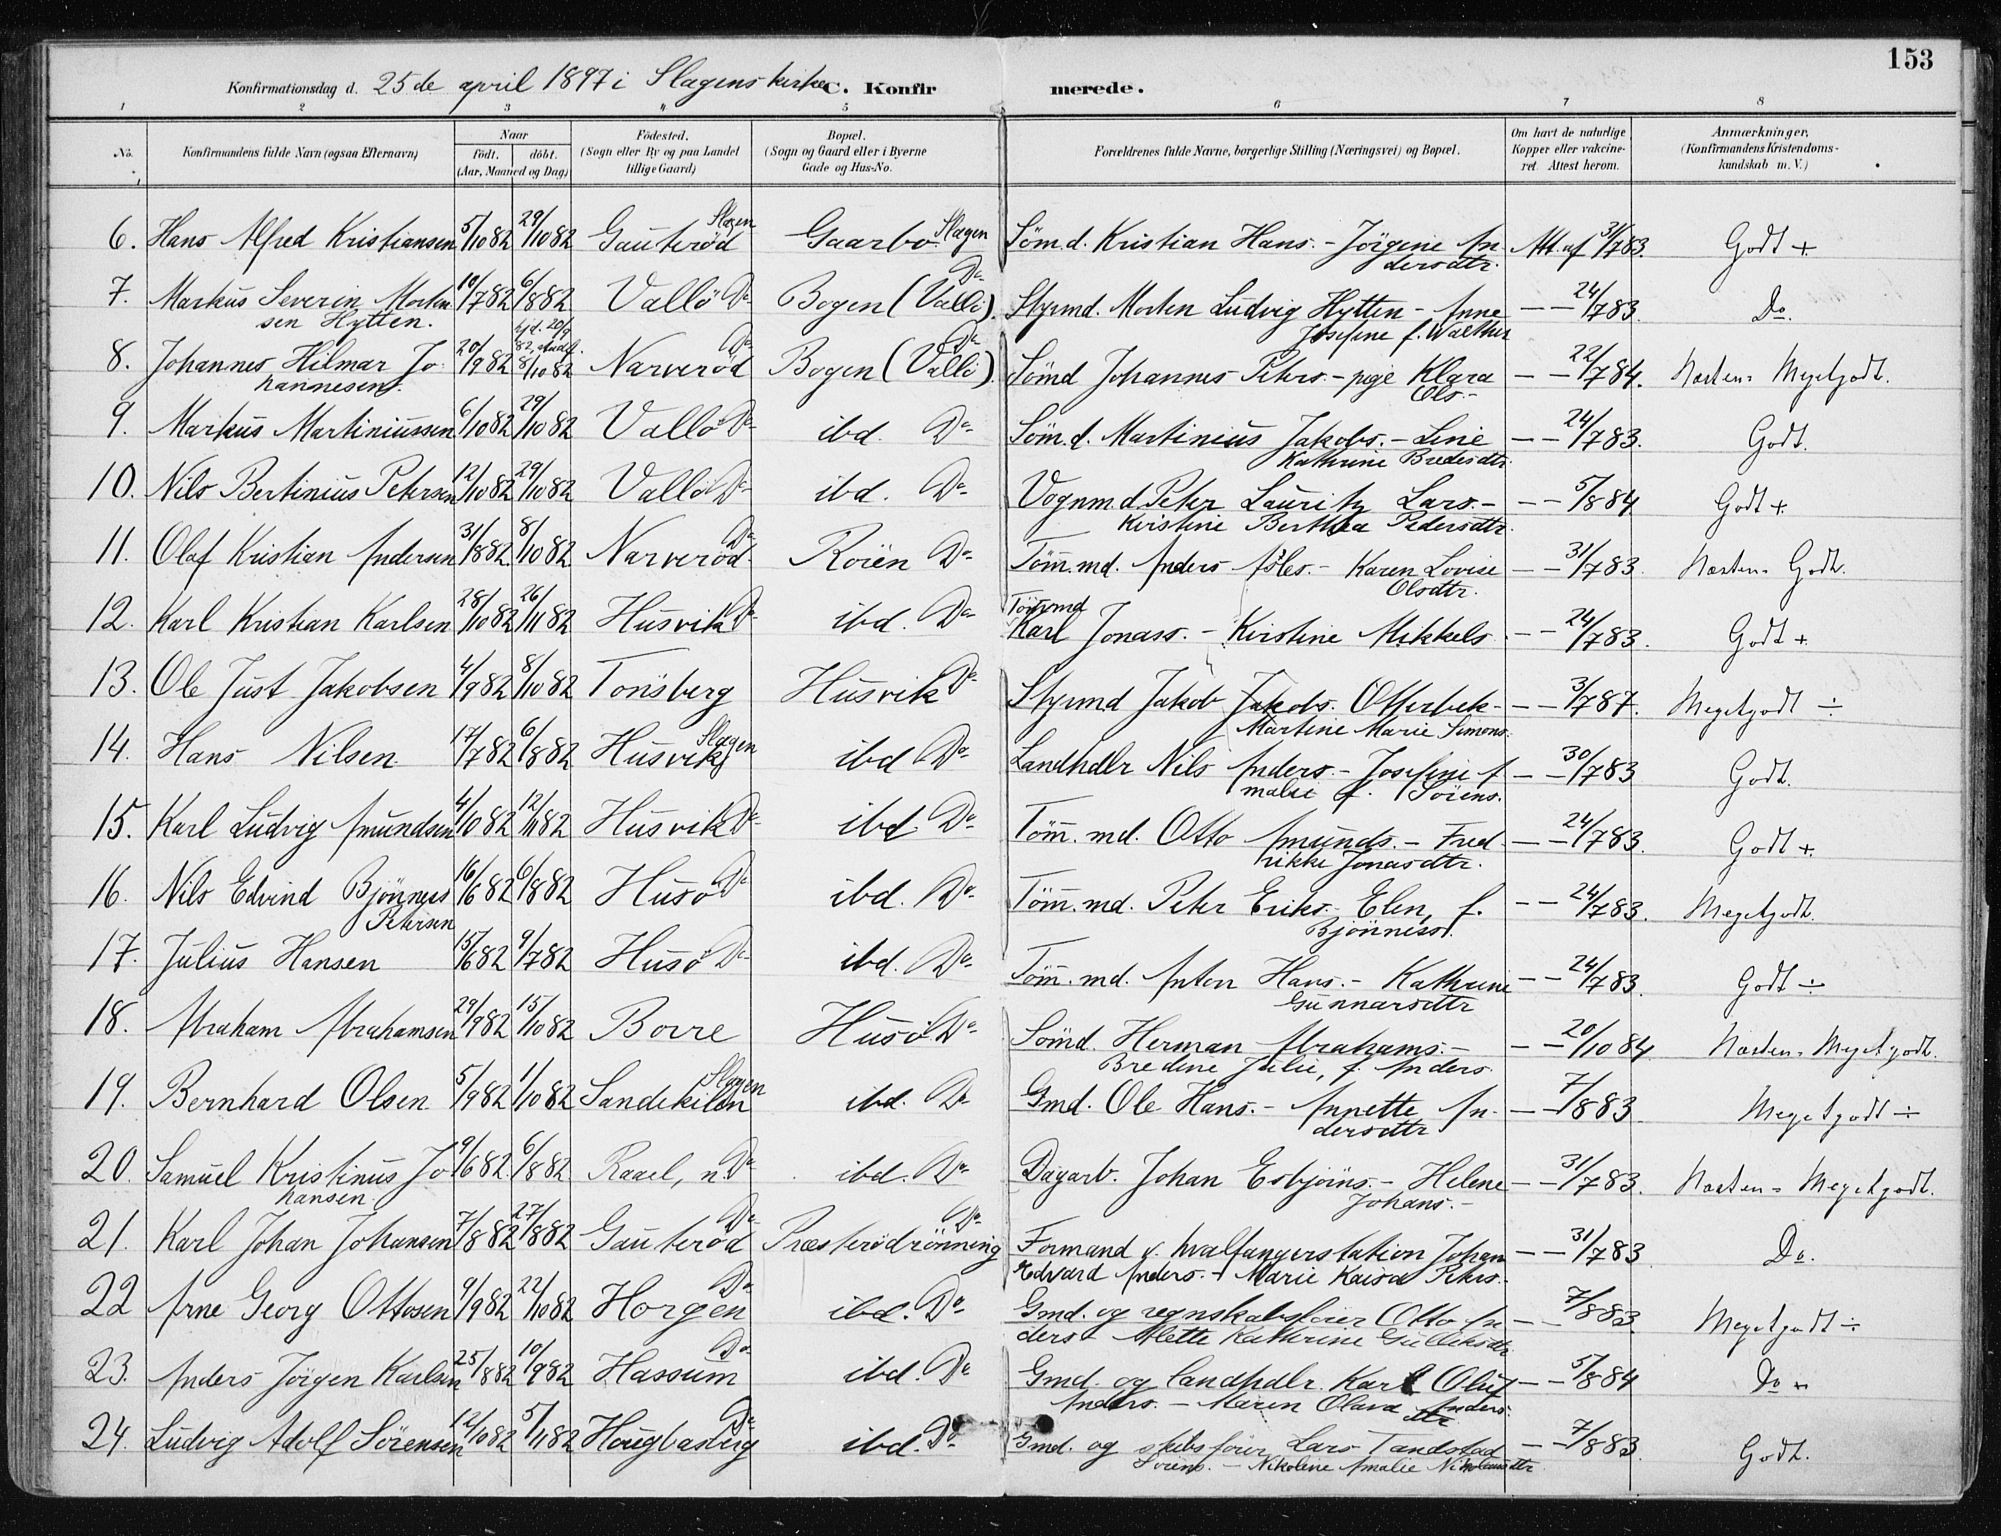 153
Konfirmationsdag d. 25de april 1897 i Slagens kirke C. Konfirmerede.
1 2 3 4 5 6 7 8
No. Konfirmandens fulde Navn (ogsaa Efternavn) Naar födt. döbt. (Aar, Maaned og Dag) Födested. (Sogn eller By og paa Landet tillige Gaard) Bopæl. (Sogn og Gaard eller i Byerne Gade og Hus-No. Forældrenes fulde Navne, borgerlige Stilling (Næringsvei) og Bopæl. Om havt de naturlige Kopper eller vakcineret. Attest herom. Anmærkninger. (Konfirmandens Kristendomskundskab m. V.)
6. Hans Alfred Kristiansen 5/10 82 29/10 82 Gauteröd Slagen Gaarbo Slagen Sömd. Kristian Hans. - Jörgine Andersdtr. Att. af 31/7 83. Godt +
7. Markus Severin Mortensen Hytten. 10/7 82 6/8 82 Vallö Do Bogen (Vallö). Do Styrmd. Morten Ludvig Hytten - Anne Josefine f. Walther — — 24/7 83. Do.
8. Johannes Hilmar Johannesen. 20/9 82 hjd. 20/9 82, stadf. 8/10 82 Narveröd Do Bogen (Vallö). Do Sömd Johannes Peters. - pige Klara Ols.- — — 22/7 84. Næsten Megetgodt.
9. Markus Martiniussen 6/10 82 29/10 82 Vallö Do ibd. Do Sömd. Martinius Jakobs. - Line Kathrine Bredesdtr. — — 24/7 83. Godt.
10. Nils Bertinius Petersen 12/10 82 29/10 82 Vallö Do ibd. Do Vognmd. Peter Lauritz Lars. - Kirstine Berthea Pedersdtr. — — 5/8 84. Godt +
11. Olaf Kristian Andersen 31/8 82. 8/10 82 Narveröd. Do Roien Do Tömm. md. Anders Asles. - Karen Lovise Olsdtr. — — 31/7 83. Næsten Godt.
12. Karl Kristian Karlsen 28/10 82 26/11 82 Husvik Do ibd. Do Tömrmd Karl Jonass. - Kirstine Mikkels. — — 24/7 83. Godt +
13. Ole Just Jakobsen 4/9 82 8/10 82 Tönsberg Husvik Do Styrmd Jakob Jakobs. Otterbek - Martine Marie Simons. — — 3/7 87. Megetgodt ÷
14. Hans Nilsen 17/7 82 6/8 82 Husvik Slagen ibd Do Landhdlr Nils Anders. - Josefine Amalie f. Sörens. — — 30/7 83 Godt.
15. Karl Ludvig Amundsen 4/10 82 12/11 82 Husvik Do ibd. Do Tömm. md. Otto Amunds. - Fredrikke Jonasdtr. — — 24/7 83. Godt +
16. Nils Edvind Bjönnes Petersen 16/6 82 6/8 82 Husö Do ibd. Do Tömm. md. Peter Eriks. - Elen, f. Bjönness. — — 24/7 83. Megetgodt.
17. Julius Hansen 15/6 82 9/7 82 Husö Do ibd. Do Tömm. md. Anton Hans. - Kathrine Gunnarsdtr — — 24/7 83. Godt ÷
18. Abraham Abrahamsen 29/9 82 15/10 82 Borre Husö Do Sömd. Herman Abrahams. - Bredine Julie, f. Anders. — — 20/10 84 Næsten Megetgodt.
19. Bernhard Olsen 5/9 82 1/10 82 Sandekilen Slagen ibd. Do Gmd. Ole Hans. - Annette Andersdtr — — 7/8 83 Megetgodt ÷
20. Samuel Kristinus Johansen. 9/6 82. 6/8 82 Raael, n. Do ibd. Do Dagarb. Johan Esbjöins. - Helene Johans. - — — 31/7 83. Næsten Megetgodt.
21. Karl Johan Johansen 7/8 82 27/8 82 Gauteröd Do Præsterödrönning Do Formand v. hvalfangerstation Johan Edvard Anders. - Marie Kaisa Peters. - — — 31/7 83 Do.
22 Arne Georg Ottosen 9/9 82 22/10 82 Horgen Do ibd. Do Gmd. og regnskabsförer Otto Anders - Alette Kathrine Gulliksdtr — — 7/8 83. Megetgodt ÷
23. Anders Jörgen Karlsen 25/8 82 10/9 82 Hassum Do ibd. Do Gmd. og landhdlr. Karl Oluf Anders. - Maren Olava Andersdtr — — 5/8 84 Do
24. Ludvig Adolf Sörensen 12/10 82 5/11 82 Hougbasberg Do ibd. Do Gmd. og skibsförer Lars Tandstad Sörens. - Nikoline Amalie Nikolausdtr — — 7/8 83 Godt.